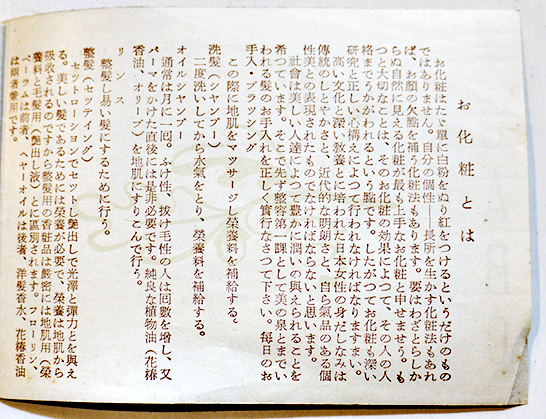 お化粧とは
お化粧はたゞ單に白粉をぬり紅をつけるというだけのもの
ではありません。自分の個性――長所を生かす化粧法もあれ
ば、お顔の欠點を補う化粧法もあります。要はわざとらしか
らぬ自然に見える化粧が最も上手なお化粧と申せませう。も
つと大切なことは、そのお化粧の効果によつて、その人の人
格までうかゞわれるという點です。したがつてお化粧も深い
研究と正しい心構えによつて行われなければなりますまい。
高い文化と深い敎養とに培われた日本女性の身だしなみは
傳統のしとやかさと、近代的な明朗さと、自ら氣品のある個
性美との表現されたものでなければならないと思います。
社會は美しい人達によつて豊かに潤いの與えられることを
希つています。そこで先ず整容第一課として美の泉とまでい
われる髪のお手入れを正しく實行なさつて下さい。毎日のお
手入・ブラッシング
この際に地肌をマッサージし榮養料を補給する。
洗髪(シャンプー)
二度洗いしてから水氣をとり、榮養料を補給する。
オイルシャンプー
通常は月に一回。ふけ性、抜け毛性の人は回數を増し、又
パーマをかけた直後には是非必要です。純良な植物油(花椿
香油、オリーブ)を地肌にすりこんで行う。
リンス
整髪し易い髪にするために行う。
整髪(セッティング)
セットローションでセットし艶出しで光澤と彈力とを與え
る。美しい髪であるためには榮養が必要で、榮養は地肌から
吸收されるのですから整髪用の香粧品は嚴密には地肌用(榮
養料と毛髪用(艶出し液)とに區別されます。フローリン、
ベーラムは前者、ヘヤーオイルは後者、洋髪香水、花椿香油
は兩者兼用です。